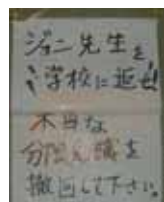 ジョニ先生を
学校に返せ!
不当な
分限免職を
撤回して下さい